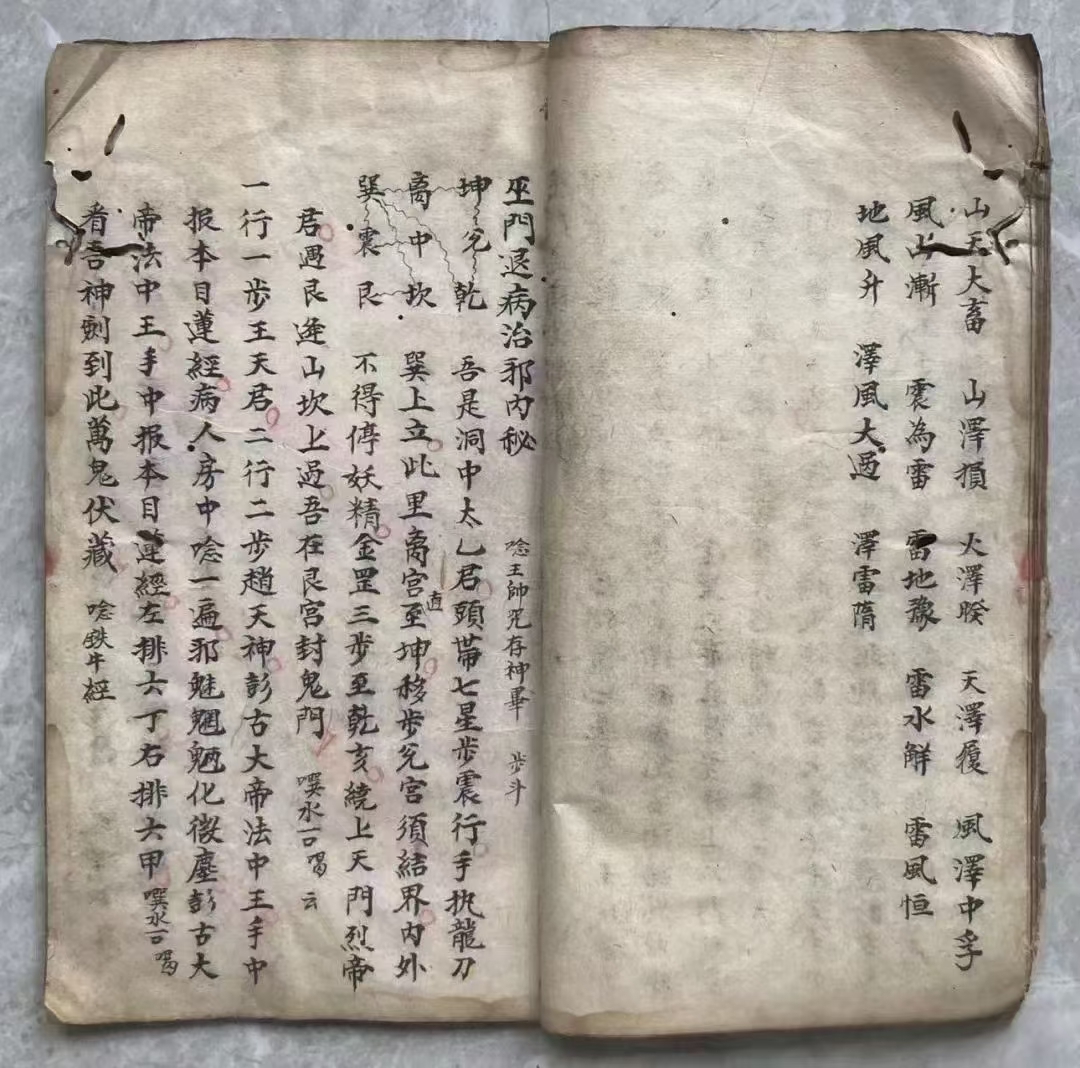 山天大畜　山澤損　火澤睽　天澤履　風澤中孚
風山漸　震為雷　雷地豫　雷水解　雷風恒
地風升　澤風大過　澤雷隋
巫門退病治邪內秘　唸王帥咒存神畢　步斗
坤兌乾　吾是洞中太乙君頭帶七星步震行手执龍刀
离中坎　巽上立此里离宫至直坤移步兌宮須結界內外
巽震艮　不得停妖精金罡三步至乾亥繞上天門烈帝
君遇艮逄山坎上過吾在艮宮封鬼門　噀水一口喝云
一行一步王天君二行二步趙天神彭古大帝法中王手中
报本目蓮經病人房中唸一遍邪魅魍魎化微塵彭古大
帝法中王手中报本目蓮經左排六丁右排六甲　噀水一口喝
看吾神劍到此萬鬼伏藏　唸鉄牛經